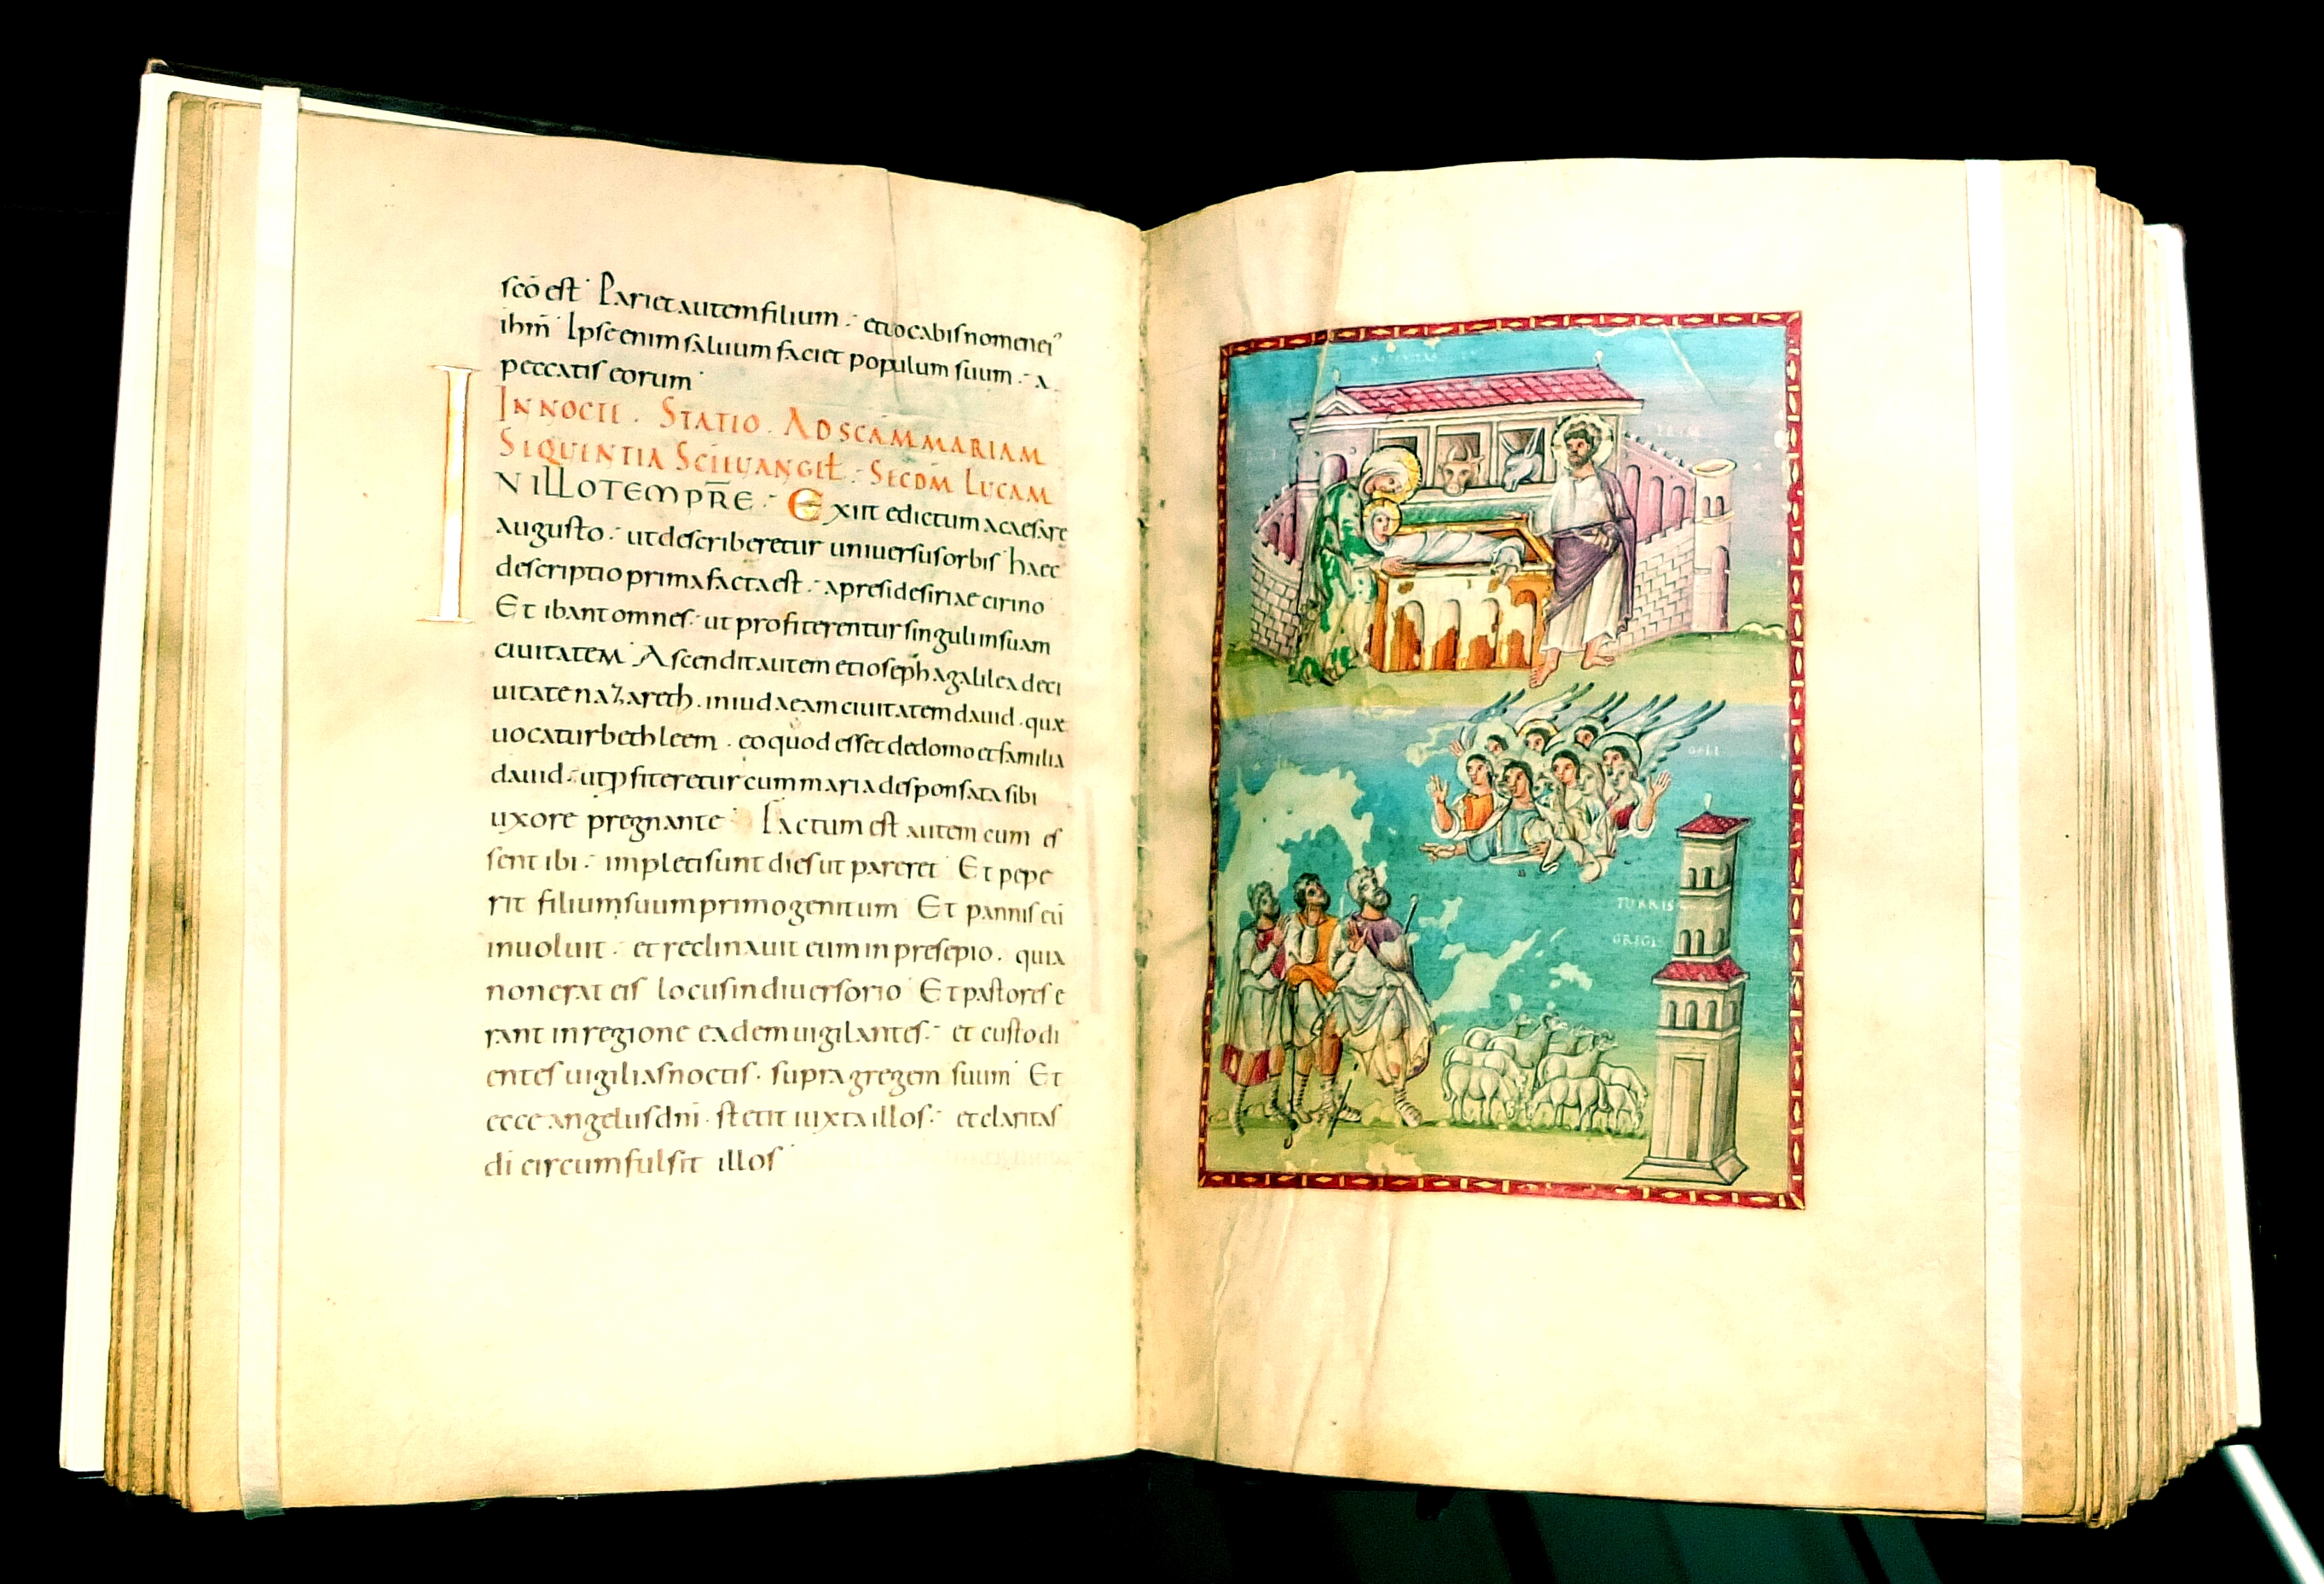 scō est Pariet autem filium et vocabis nomen ei'
ihm̄ Ipse enim saluum faciet populum suum a
peccatis eorum
IN NOCTE. STATIO. AD SCAM MARIAM
SEQUENTIA SCI EUANGEL. SECDM LUCAM
IN ILLO TEMPR̄E Exiit edictum a caesare
augusto ut describeretur universus orbis haec
descriptio prima facta est a preside siriae cirino
Et ibant omnes ut profiterentur singuli in suam
civitatem Ascendit autem et ioseph a galilea de ci
vitate nazareth. in iudaeam civitatem david. quae
vocatur bethleem. eo quod esset de domo et familia
david ut pfiteretur cum maria desponsata sibi
uxore pregnante Factum est autem cum es
sent ibi impleti sunt dies ut pareret Et pepe
rit filium suum primogenitum Et pannis eū
involvit et reclinavit eum in presepio. quia
non erat eis locus in diversorio Et pastores e
rant in regione eadem vigilantes et custodi
entes vigilias noctis. supra gregem suum Et
ecce angelus dni. stetit iuxta illos et claritas
di circumfulsit illos
TURRIS
GREGIS